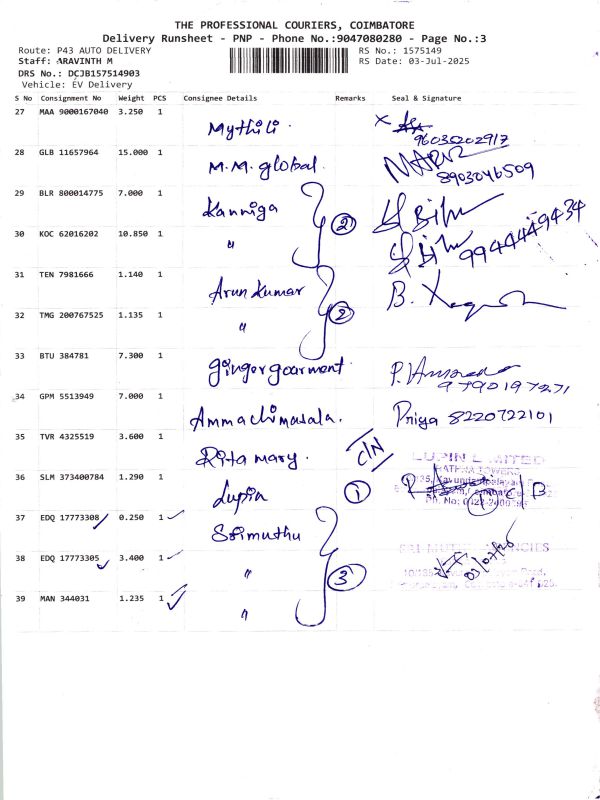 THE PROFESSIONAL COURIERS, COIMBATORE
Delivery Runsheet - PNP - Phone No.:9047080280 - Page No.:3
Route: P43 AUTO DELIVERY RS No.: 1575149
Staff: ARAVINTH M RS Date: 03-Jul-2025
DRS No.: DCJB157514903
Vehicle: EV Delivery
S No Consignment No Weight PCS Consignee Details Remarks Seal & Signature
27 MAA 9000167040 3.250 1
Mythili. X
9603202917
28 GLB 11657964 15.000 1
M.M. global.
8903046509
29 BLR 800014775 7.000 1
Kanniga 2
30 KOC 62016202 10.850 1
" 9944449434
31 TEN 7981666 1.140 1
Arun Kumar B.
32 TMG 200767525 1.135 1 2
"
33 BTU 384781 7.300 1
gingergoarment P.
9790197271
34 GPM 5513949 7.000 1
Ammachimasala. Priya 8220722101
35 TVR 4325519 3.600 1
Rita mary. C/N LUPIN LIMITED
36 SLM 373400784 1.290 1
Lupin 1
37 EDQ 17773308 0.250 1
Srimuthu
38 EDQ 17773305 3.400 1
" 3
39 MAN 344031 1.235 1
"